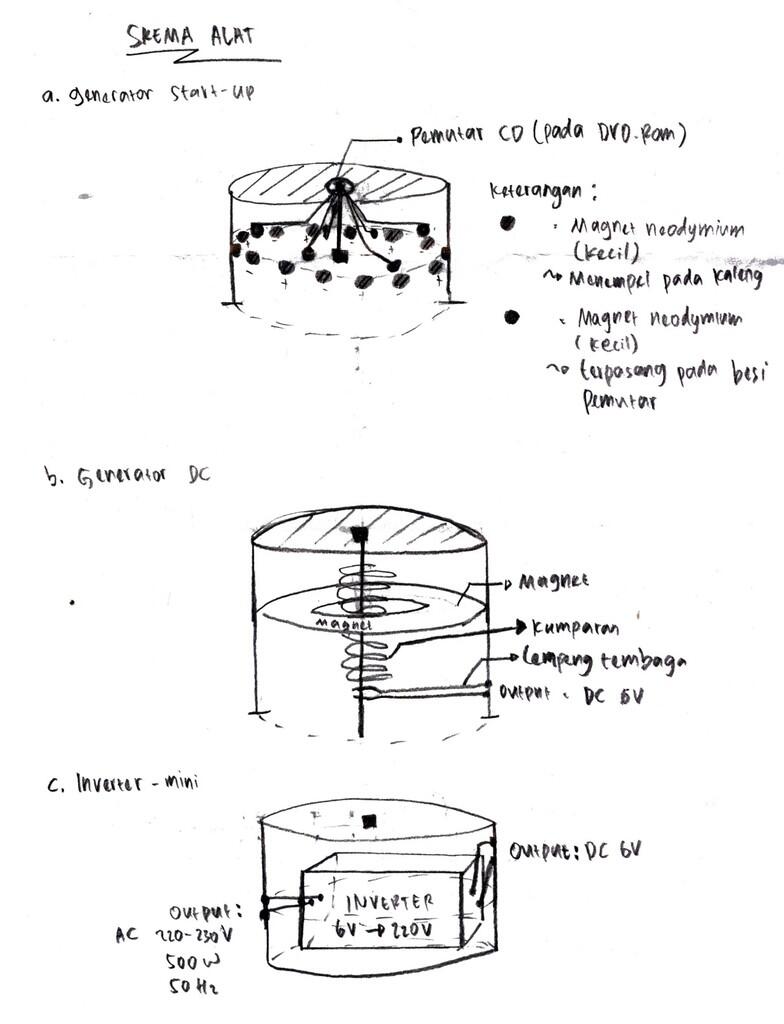 SKEMA ALAT
a. Generator Start-up
Pemutar CD (pada DVD-Rom)
Keterangan :
: Magnet neodymium
(kecil)
~> Menempel pada kaleng
: Magnet neodymium
(kecil)
~> terpasang pada besi
pemutar
b. Generator DC
Magnet
Magnet
Kumparan
Lempeng tembaga
Output :
c. Inverter - mini
Output : DC 6V
INVERTER
6V → 220V
Output :
AC 220-230V
500 W
50 Hz